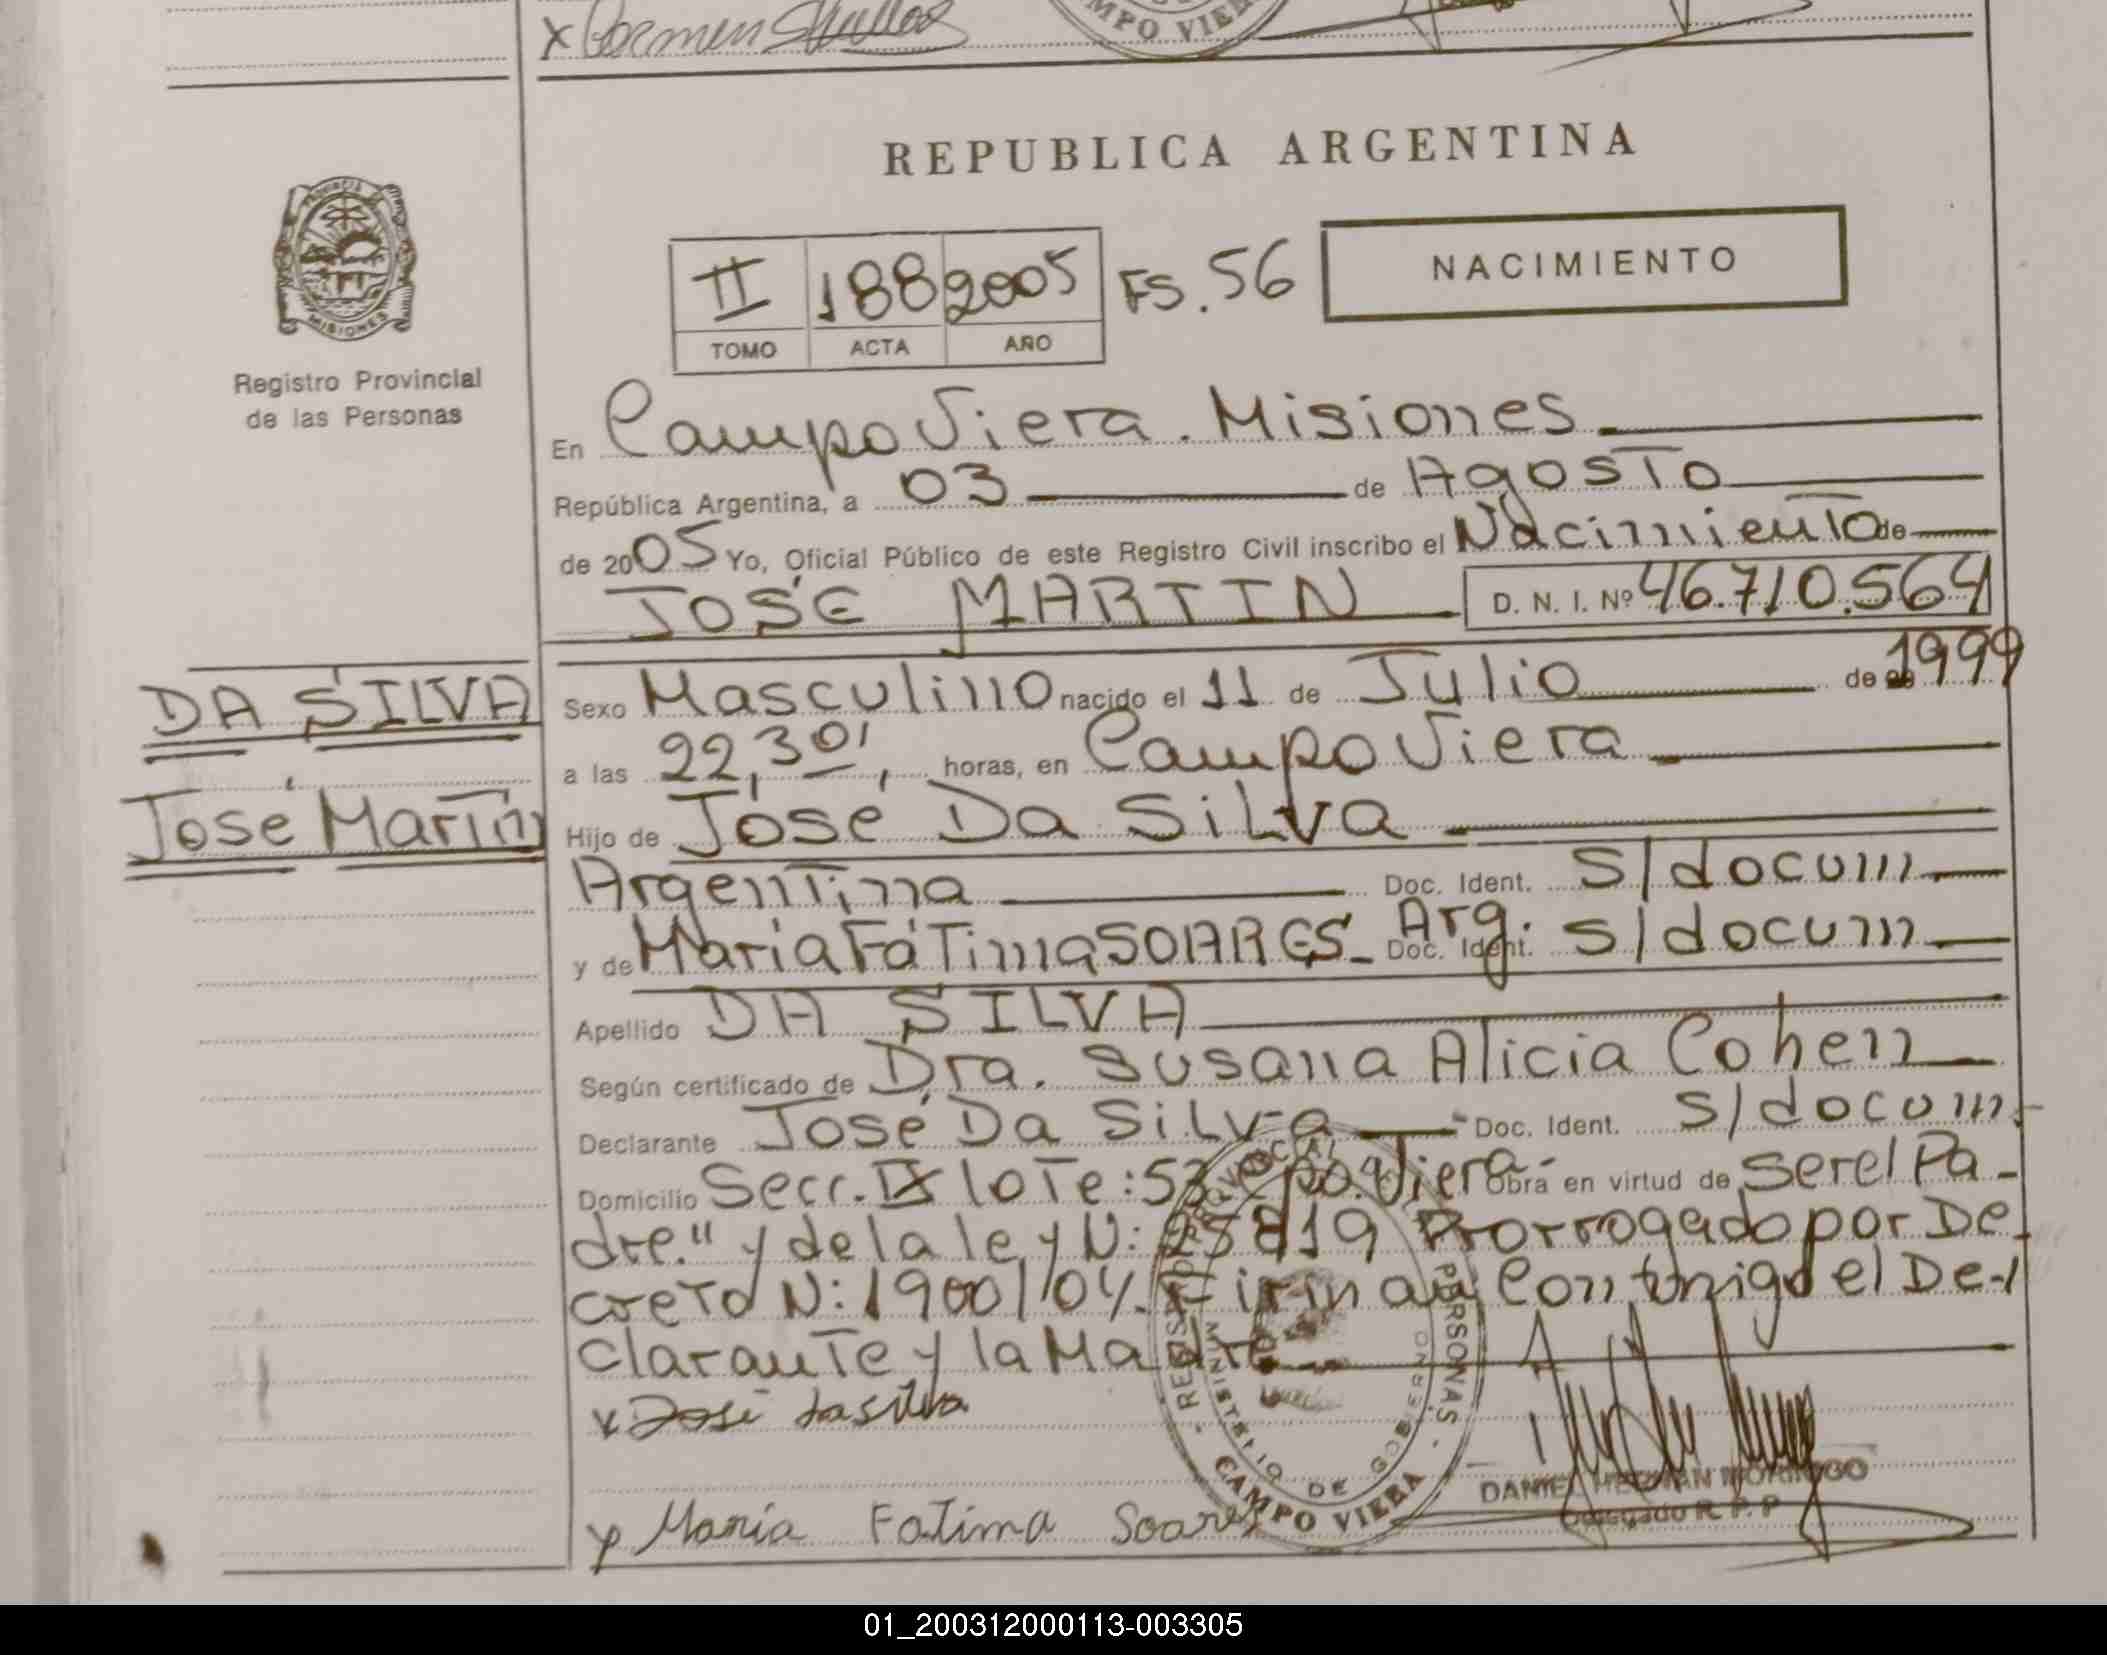 x Carmen
CAMPO VIERA
REPUBLICA ARGENTINA
PROVINCIA
MISIONES
Registro Provincial
de las Personas
II 188 2005 FS. 56
TOMO ACTA AÑO
NACIMIENTO
En Campo Viera. Misiones
República Argentina, a 03 de Agosto
de 2005 Yo, Oficial Público de este Registro Civil inscribo el Nacimiento de
JOSÉ MARTIN D. N. I. Nº 46.710.564
DA SILVA
José Martín
Sexo Masculino nacido el 11 de Julio de 1999
a las 22,30', horas, en Campo Viera
Hijo de José Da Silva
Argentina Doc. Ident. S/docum
y de María Fátima SOARES Arg. Doc. Ident. S/docum
Apellido DA SILVA
Según certificado de Dra. Susana Alicia Cohen
Declarante José Da Silva Doc. Ident. S/docum.
Domicilio Secc. IX lote: 53 Cpo. Viera Obra en virtud de ser el Pa-
dre." y de la ley N: 25819 Prorrogado por De-
creto N: 1900/04. Firman Conmigo el De-
clarante y la Madre
x José dasilva
x María Fatima Soares
REGISTRO PROVINCIAL DE LAS PERSONAS
MINISTERIO DE GOBIERNO
CAMPO VIERA
DANIEL HERNAN MORINIGO
Delegado R. P. P
01_200312000113-003305